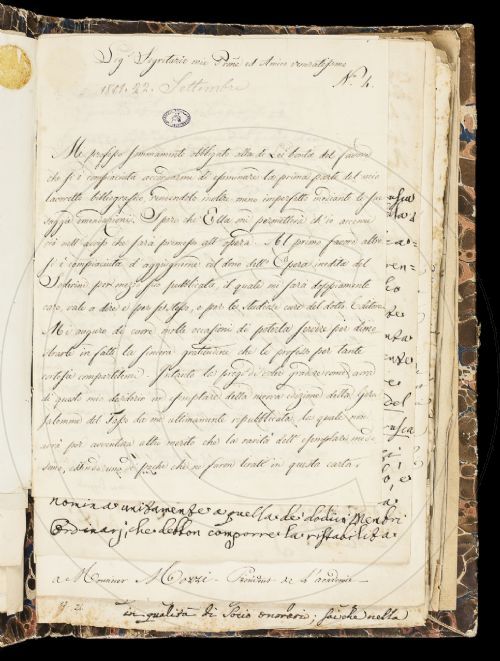 Sig.r Segretario mio Prōne ed Amico veneratissimo
N. 4.
1811. 22. Settembre
Mi professo sommamente obbligato alla di Lei bontà del favore
che si è compiaciuta accordarmi di esaminare la prima parte del mio
lavoretto bibliografico, rendendolo molto meno imperfetto mediante le sue
sagge emendazioni. Spero che Ella mi permetterà ch'io accenni
ciò nell'avviso che sarà premesso all'opera. Al primo favore altro
si è compiaciuta d'aggiugnerne col dono dell'Opera inedita del
Soderini per mezzo suo pubblicata, il quale mi sarà doppiamente
caro, vale a dire e per se stesso, e per le studiose cure del dotto Editore.
Mi auguro di cuore molte occasioni di poterla servire per dimo
strarle in fatti la sincera gratitudine che le professo per tante
cortesie compartitemi. Intanto la prego di voler gradire come arra
di questo mio desiderio un esemplare della nuova edizione della Geru
salemme del Tasso da me ultimamente ripubblicata, la quale non
avrà per avventura altro merito che la rarità dell'esemplare mede
simo, essendo uno de' pochi che ne furon tirati in questa carta.
nomina unitamente a quella de i dodici Membri
Ordinarj, che debbon comporre la ristabilita
a Monsieur Mozzi - Président de l'académie -
in qualità di Socio onorario; sì che nella